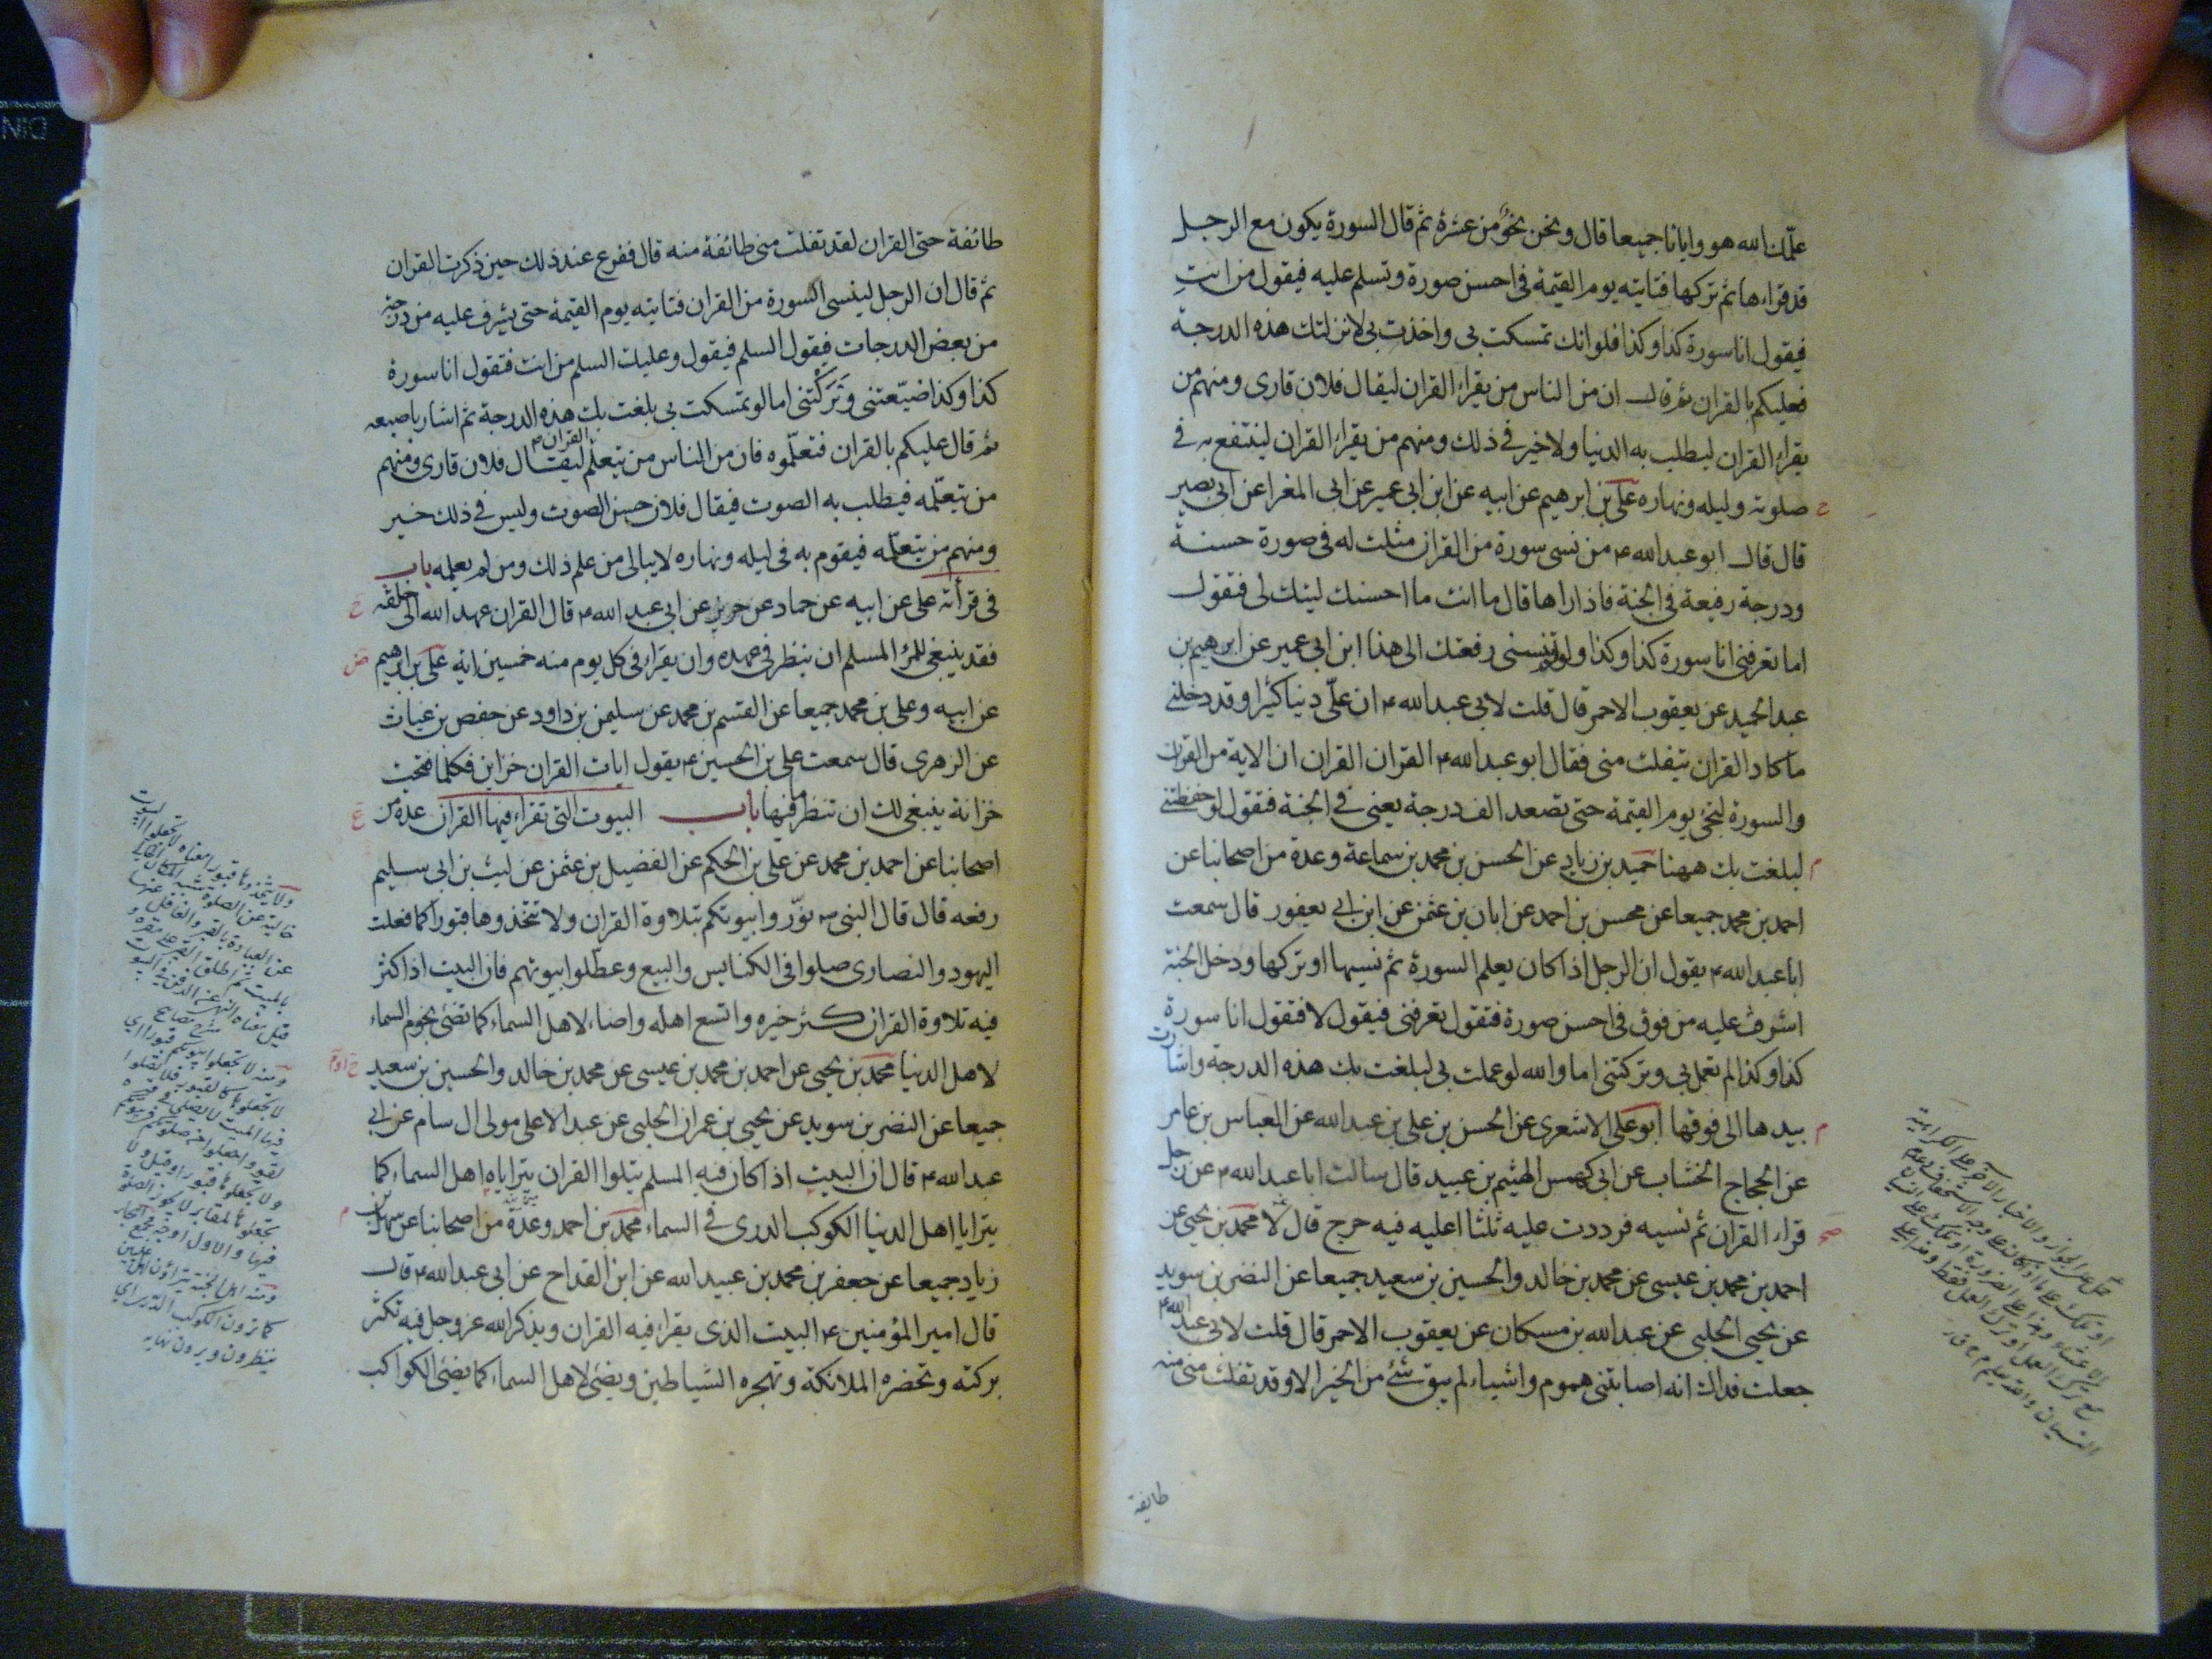 علّمك الله هو وايانا جميعا قال ونحن نحوٌ من عشرة ثم قال السورة يكون مع الرجل
قد قراءها ثم تركها فتاتيه يوم القيمة فى احسن صورة وتسلم عليه فيقول من انتِ
فيقول انا سورة كذا وكذا فلو انك تمسكت بى واخذت بى لانزلتك هذه الدرجة
فعليكم بالقران ثم قال ان من الناس من يقراء القران ليقال فلان قارى ومنهم من
يقراء القران ليطلب به الدنيا ولا خير فى ذلك ومنهم من يقراء القران لينتفع به فى
صلوته وليله ونهاره على بن ابرهيم عن ابيه عن ابن ابى عمير عن ابى المغرا عن ابى بصير
قال قال ابو عبد الله ع من نسى سورة من القران مثلت له فى صورة حسنة
ودرجة رفيعة فى الجنة فاذا راها قال ما انت ما احسنك ليتك لى فتقول
اما تعرفنى انا سورة كذا وكذا ولو لم تنسنى رفعتك الى هذا ابن ابى عمير عن ابرهيم بن
عبد الحميد عن يعقوب الاحمر قال قلت لابى عبد الله ع ان علىّ دينا كثيرا وقد دخلنى
ما كاد القران يتفلت منى فقال ابو عبد الله ع القران القران ان الاية من القران
والسورة لتجئ يوم القيمة حتى تصعد الف درجة يعنى فى الجنة فتقول لو حفظتنى
لبلغت بك ههنا حميد بن زياد عن الحسن بن محمد بن سماعة وعدة من اصحابنا عن
احمد بن محمد جميعا عن محسن بن احمد عن ابان بن عثمن عن ابن ابى يعفور قال سمعت
ابا عبد الله ع يقول ان الرجل اذا كان يعلم السورة ثم نسيها او تركها ودخل الجنة
اشرف عليه من فوق فى احسن صورة فتقول تعرفنى فيقول لا فتقول انا سورة
كذا وكذا لم تعمل بى وتركتنى اما والله لو عملت بى لبلغت بك هذه الدرجة واشارت
بيدها الى فوقها ابو على الاشعرى عن الحسن بن على بن عبد الله عن العباس بن عامر
عن الحجاج الخشاب عن ابى كهمس الهيثم بن عبيد قال سالت ابا عبد الله ع عن رجل
قراء القران ثم نسيه فرددت عليه ثلثا اعليه فيه حرج قال لا محمد بن يحيى عن
احمد بن محمد بن عيسى عن محمد بن خالد والحسين بن سعيد جميعا عن النضر بن سويد
عن يحيى الحلبى عن عبد الله بن مسكان عن يعقوب الاحمر قال قلت لابى عبد الله ع
جعلت فداك انه اصابتنى هموم واشياء لم يبق شئ من الخير الا وقد تفلت منى منه
طايفة
طائفة حتى القران لقد تفلت منى طائفة منه قال ففزع عند ذلك حين ذكرت القران
ثم قال ان الرجل لينسى السورة من القران فتاتيه يوم القيمة حتى يشرف عليه من درجة
من بعض الدرجات فيقول السلم فيقول وعليك السلم من انت فتقول انا سورة
كذا وكذا ضيّعتنى وتَركْتنى اما لو تمسكت بى بلغت بك هذه الدرجة ثم اشار باصبعه
ثم قال عليكم بالقران فتعلّموه فان من الناس من يتعلم القران ليقال فلان قارى ومنهم
من يتعلّمه فيطلب به الصوت فيقال فلان حسن الصوت وليس فى ذلك خير
ومنهم من يتعلّمه فيقوم به فى ليله ونهاره لا يبالى من علم ذلك ومن لم يعلمه باب
فى قرأته على عن ابيه عن حماد عن حريز عن ابى عبد الله ع قال القران عهد الله الى خلقه
فقد ينبغى للمرٔ المسلم ان ينظر فى عهده وان يقراء فى كل يوم منه خمسين اية على بن ابرهيم
عن ابيه وعلى بن محمد جميعا عن القسم بن محمد عن سليمن بن داود عن حفص بن غياث
عن الزهرى قال سمعت على بن الحسين ع يقول ايات القران خزاين فكلما فتحت
خزانة ينبغى لك ان تنظر ما فيها باب البيوت التى تقراء فيها القران عدة من
اصحابنا عن احمد بن محمد عن على بن الحكم عن الفضيل بن عثمن عن ليث بن ابى سليم
رفعه قال قال النبى ص نوّروا بيوتكم بتلاوة القران ولا تتخذوها قبورا كما فعلت
اليهود والنصارى صلوا فى الكنايس والبيع وعطّلوا بيوتهم فان البيت اذا كثر
فيه تلاوة القران كثر خيره واتسع اهله واضاء لاهل السماء كما تضئ نجوم السماء
لاهل الدنيا محمد بن يحيى عن احمد بن محمد بن عيسى عن محمد بن خالد والحسين بن سعيد
جميعا عن النضر بن سويد عن يحيى بن عمران الحلبى عن عبد الاعلى مولى ال سام عن ابى
عبد الله ع قال ان البيت اذا كان فيه المسلم يتلوا القران يتراياه اهل السماء كما
يترايا اهل الدنيا الكوكب الدرى فى السماء محمد بن احمد وعدة من اصحابنا عن سهل بن
زياد جميعا عن جعفر بن محمد بن عبيد الله عن ابن القداح عن ابى عبد الله ع قال
قال امير المؤمنين ع البيت الذى يقراء فيه القران ويذكر الله عز وجل فيه تكثر
بركته وتحضره الملائكة وتهجره الشياطين ويضئ لاهل السماء كما يضئ الكواكب